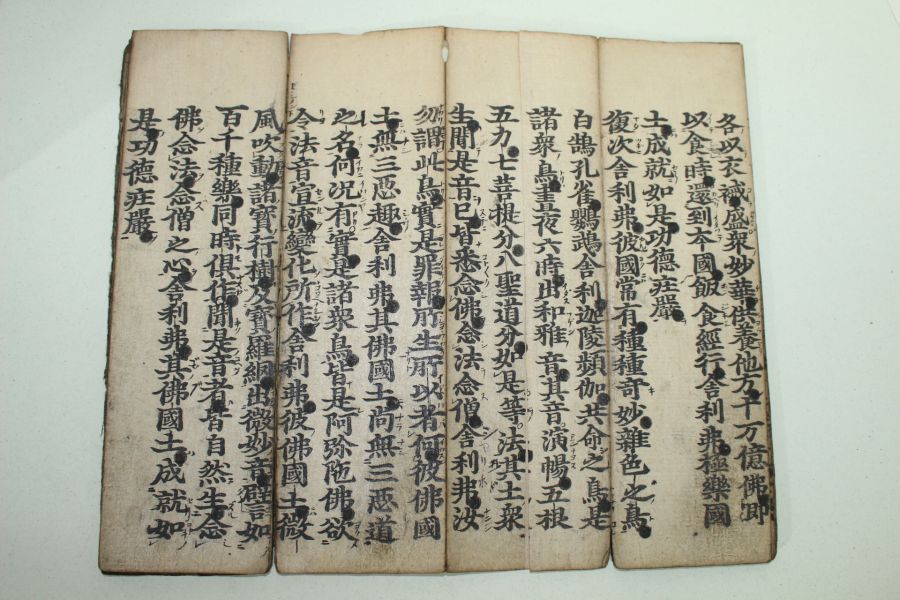 各以衣裓盛衆妙華供養他方十万億佛即
以食時還到本國飯食經行舍利弗極樂國
土成就如是功德荘嚴
復次舍利弗彼國常有種種奇妙雜色之鳥
白鵠孔雀鸚鵡舍利迦陵頻伽共命之鳥是
諸衆鳥晝夜六時出和雅音其音演暢五根
五力七菩提分八聖道分如是等法其土衆
生聞是音已皆悉念佛念法念僧舍利弗汝
勿謂此鳥實是罪報所生所以者何彼佛國
土無三惡趣舍利弗其佛國土尚無三惡道
之名何況有實是諸衆鳥皆是阿弥陀佛欲
令法音宣流變化所作舍利弗彼佛國土微
風吹動諸寳行樹及寳羅網出微妙音譬如
百千種樂同時俱作聞是音者皆自然生念
佛念法念僧之心舍利弗其佛國土成就如
是功德荘嚴